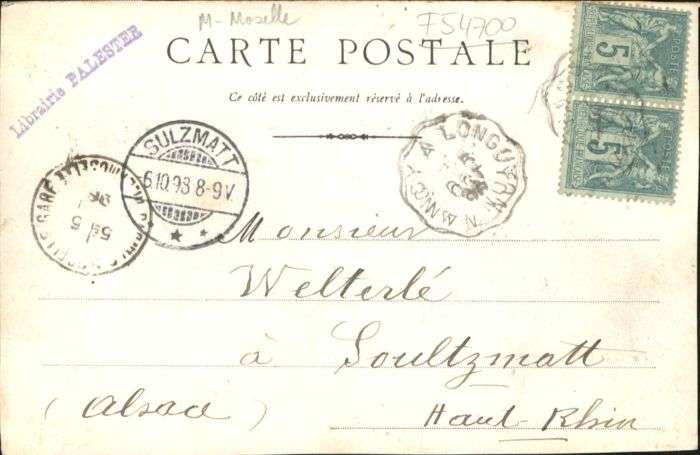 M-Moselle
F54700
Librairie PALESTER
CARTE POSTALE
Ce côté est exclusivement réservé à l'adresse.
SULZMATT
6.10.98 8-9V.
LONGUYON A NANCY
GARE
5E
5
98
5
5
Monsieur
Welterlé
à Soultzmatt
(Alsace) Haut-Rhin